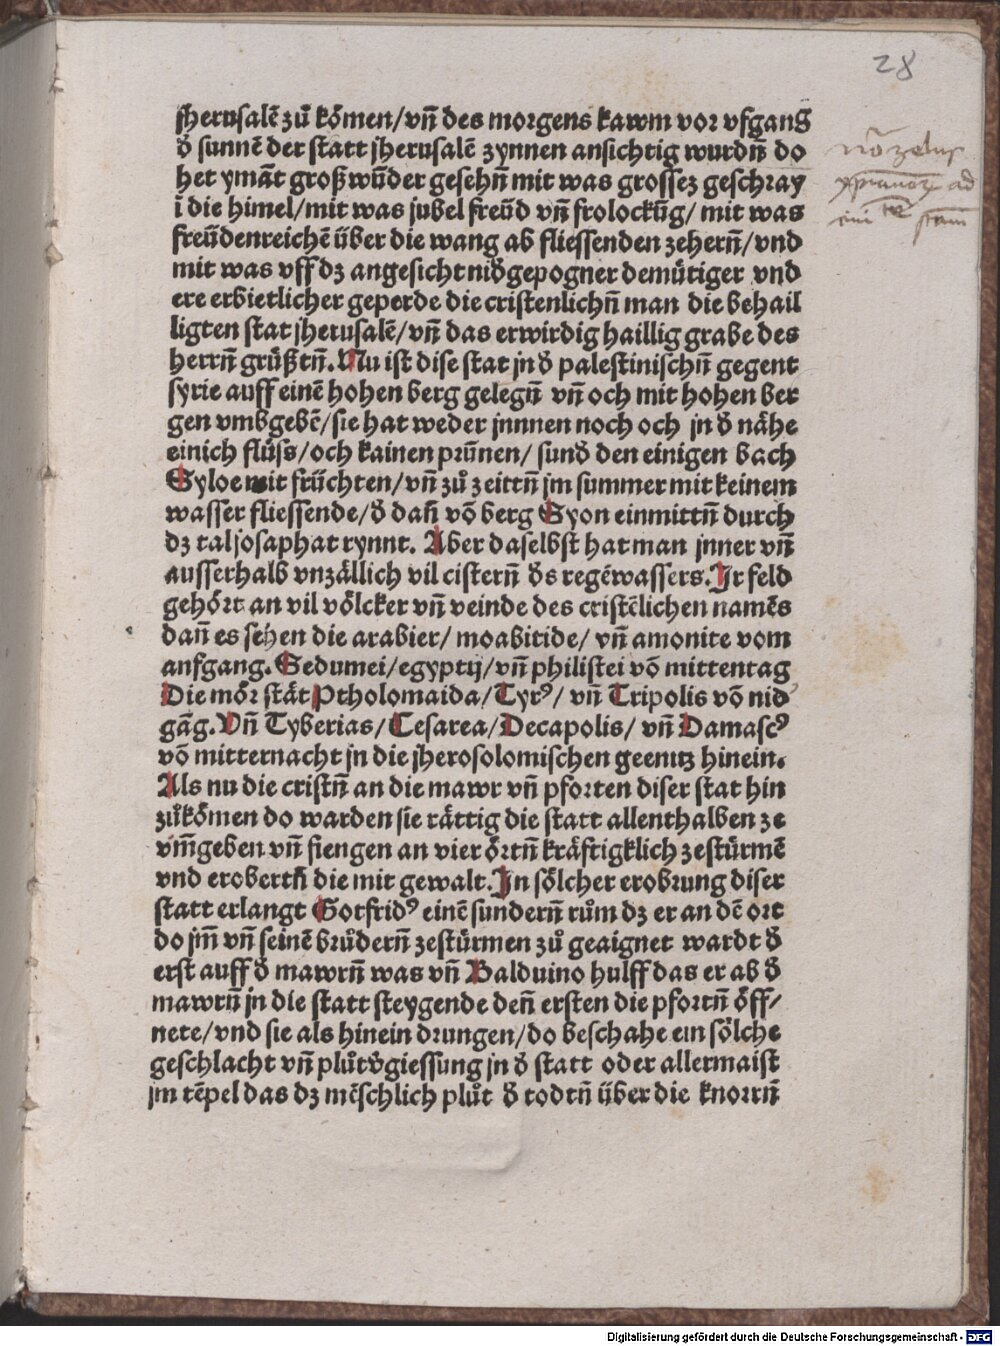 28
jherusalē zů kōmen/vn̄ des morgens kawm vor vfgang
d̄ sunnē der statt jherusalē zynnen ansichtig wurdn̄ do
het ymāt groß wūder gesehn̄ mit was grossez geschray
ī die himel/mit was jubel freüd vn̄ frolockūg/ mit was
freüdenreichē über die wang ab fliessenden zehern̄/vnd
mit was vff dz angesicht nid̄gepogner demütiger vnd
ere erbietlicher geperde die cristenlichn̄ man die behail
ligten stat jherusalē/vn̄ das erwirdig haillig grabe des
herrn̄ grüßtn̄. Nu ist dise stat jn d̄ palestinischn̄ gegent
syrie auff einē hohen berg gelegn̄ vn̄ och mit hohen ber
gen vmbgebē/sie hat weder jnnnen noch och jn d̄ nähe
einich flüss/och kainen prūnen/ sund̄ den einigen bach
Syloe mit früchten/vn̄ zů zeittn̄ jm summer mit keinem
wasser fliessende/d̄ dan̄ vō berg Syon einmittn̄ durch
dz tal josaphat rynnt. Aber daselbst hat man jnner vn̄
ausserhalb vnzällich vil cistern̄ d̄s regēwassers. Jr feld
gehört an vil völcker vn̄ veinde des cristēlichen namēs
dan̄ es sehen die arabier/ moabitide/ vn̄ amonite vom
anfgang. Sedumei/egyptij/vn̄ philistei vō mittentag
Die mör stät Ptholomaida/Tyrꝰ/ vn̄ Tripolis vō nid̕
gāg. Vn̄ Tyberias/Cesarea/Decapolis/ vn̄ Damascꝰ
vō mitternacht jn die jherosolomischen geenitz hinein.
Als nu die cristn̄ an die mawr vn̄ pforten diser stat hin
zůkōmen do warden sie rättig die statt allenthalben ze
vm̄geben vn̄ fiengen an vier örtn̄ kräftigklich zestürmē
vnd erobertn̄ die mit gewalt. Jn sölcher erobrung diser
statt erlangt Gotfridꝰ einē sundern̄ rům dz er an dē ort
do jm̄ vn̄ seinē brůdern̄ zestürmen zů geaignet wardt d̄
erst auff d̄ mawrn̄ was vn̄ Balduino hulff das er ab d̄
mawrn̄ jn die statt steygende den̄ ersten die pfortn̄ öff/
nete/vnd sie als hinein drungen/do beschahe ein sölche
geschlacht vn̄ plůtv̄giessung jn d̄ statt oder allermaist
jm tēpel das dz mēschlich plůt d̄ todtn̄ über die knorrn̄
Digitalisierung gefördert durch die Deutsche Forschungsgemeinschaft - DFG